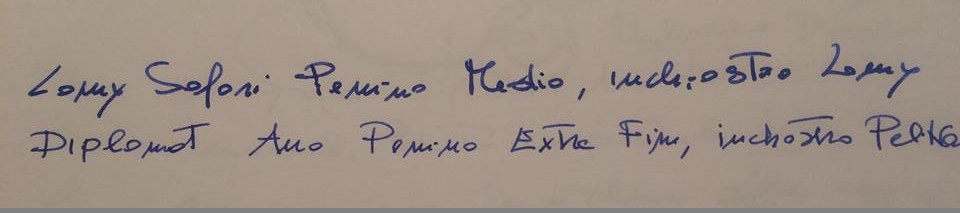 Lamy Safari Pennino Medio, inchiostro Lamy
Diplomat Aero Pennino Extra Fine, inchostro Pelika